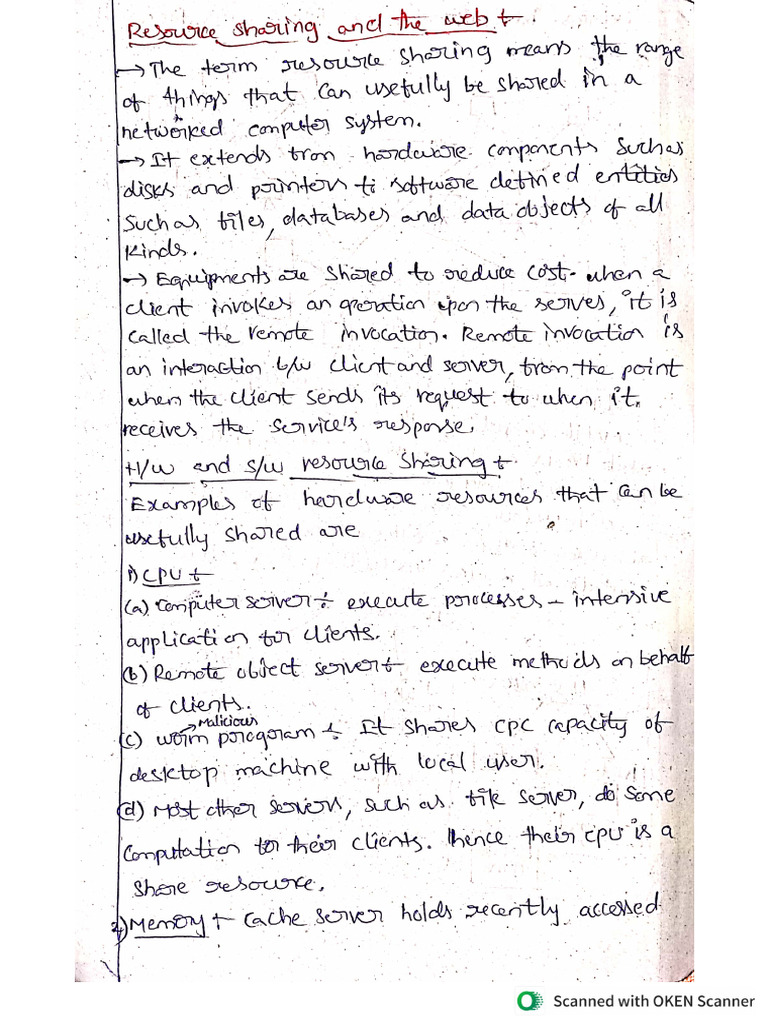 Resource sharing and the web :-
→ The term resource sharing means the range
of things that can usefully be shared in a
networked computer system.
→ It extends from hardware components such as
disks and pointers to software defined entities
such as files, databases and data objects of all
kinds.
→ Equipments are shared to reduce cost. when a
client invokes an operation upon the serves, it is
called the remote invocation. Remote invocation is
an interaction b/w client and server, from the point
when the client sends its request to when it
receives the service's response.
H/w and s/w resource sharing :-
Examples of hardware resources that can be
usefully shared are
1) CPU :-
(a) computer server :- execute processes - intensive
application for clients.
(b) Remote object server :- execute methods on behalf
of clients.
→ Malicious
(c) worm program :- It shares cpc capacity of
desktop machine with local user.
(d) Most other servers, such as file server, do some
computation for their clients. hence their cpu is a
share resource.
2) Memory :- cache server holds recently accessed
Scanned with OKEN Scanner